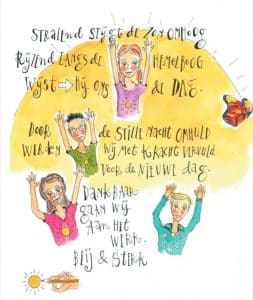 Stralend stijgt de zon omhoog
Rijzend langs de hemelboog
Wijst hij ons de dag.
Door de stille nacht omhuld
Werden wij met kracht vervuld
Voor de nieuwe dag.
Dankbaar
gaan wij
aan het
werk.
Blij & sterk